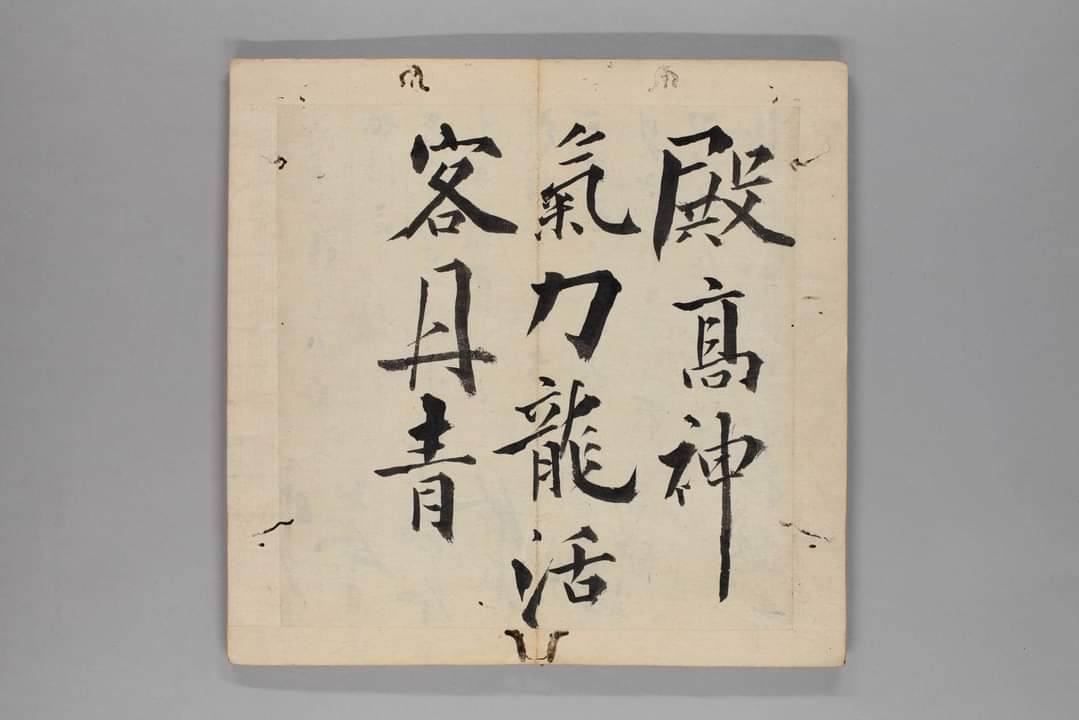 殿髙神
氣力龍活
客丹青